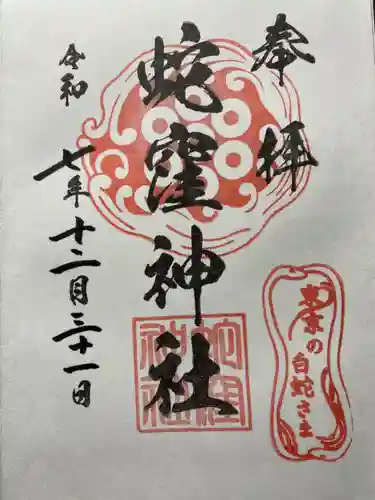 奉拝
蛇窪神社
令和
七年十二月三十一日
蛇窪神社
東京の
白蛇さま